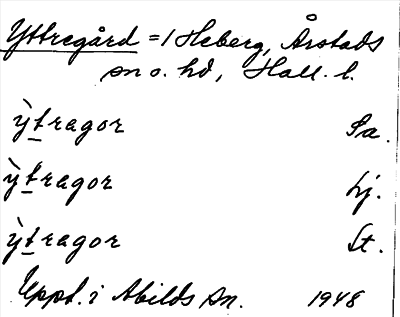 Yttregård = 1 Heberg, Årstads
sn o. hd, Hall. l.
ỳt̲ragor Sa.
ỳt̲ragor Lj.
ỳt̲ragor St.
Uppt. i Abilds sn. 1948